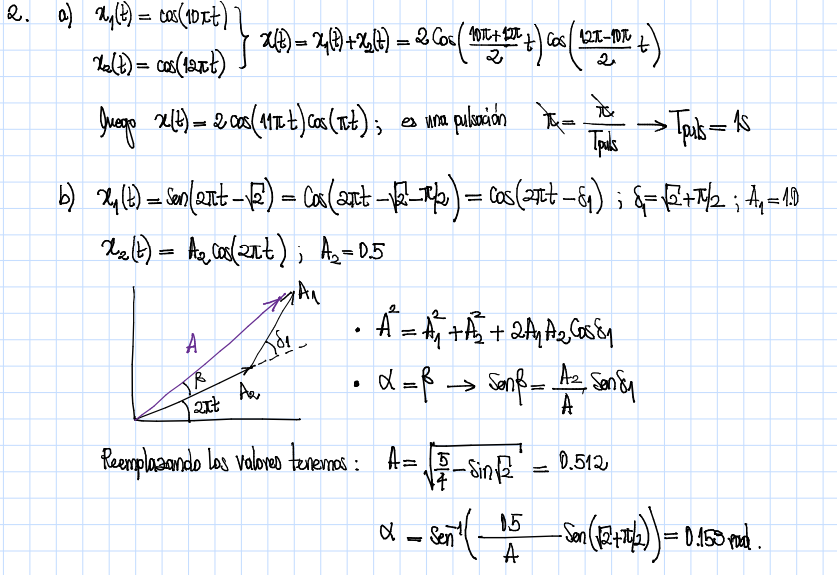 2. a) x₁(t) = cos(10πt)
x₂(t) = cos(12πt) } x(t) = x₁(t) + x₂(t) = 2 Cos((10π+12π)/2 t) cos((12π-10π)/2 t)
luego x(t) = 2 cos(11πt) cos(πt) ; es una pulsación π = π/Tpuls → Tpuls = 1s
b) x₁(t) = Sen(2πt - √2) = Cos(2πt - √2 - π/2) = cos(2πt - δ₁) ; δ₁ = √2 + π/2 ; A₁ = 1.0
x₂(t) = A₂ cos(2πt) ; A₂ = 0.5
A₁
A
δ₁
β
A₂
2πt
• A² = A₁² + A₂² + 2A₁A₂ Cos δ₁
• α = β → Sen β = A₂/A Sen δ₁
Reemplazando los valores tenemos : A = √(5/4 - Sin √2) = 0.512
α = Sen⁻¹(0.5/A Sen(√2 + π/2)) = 0.153 rad.